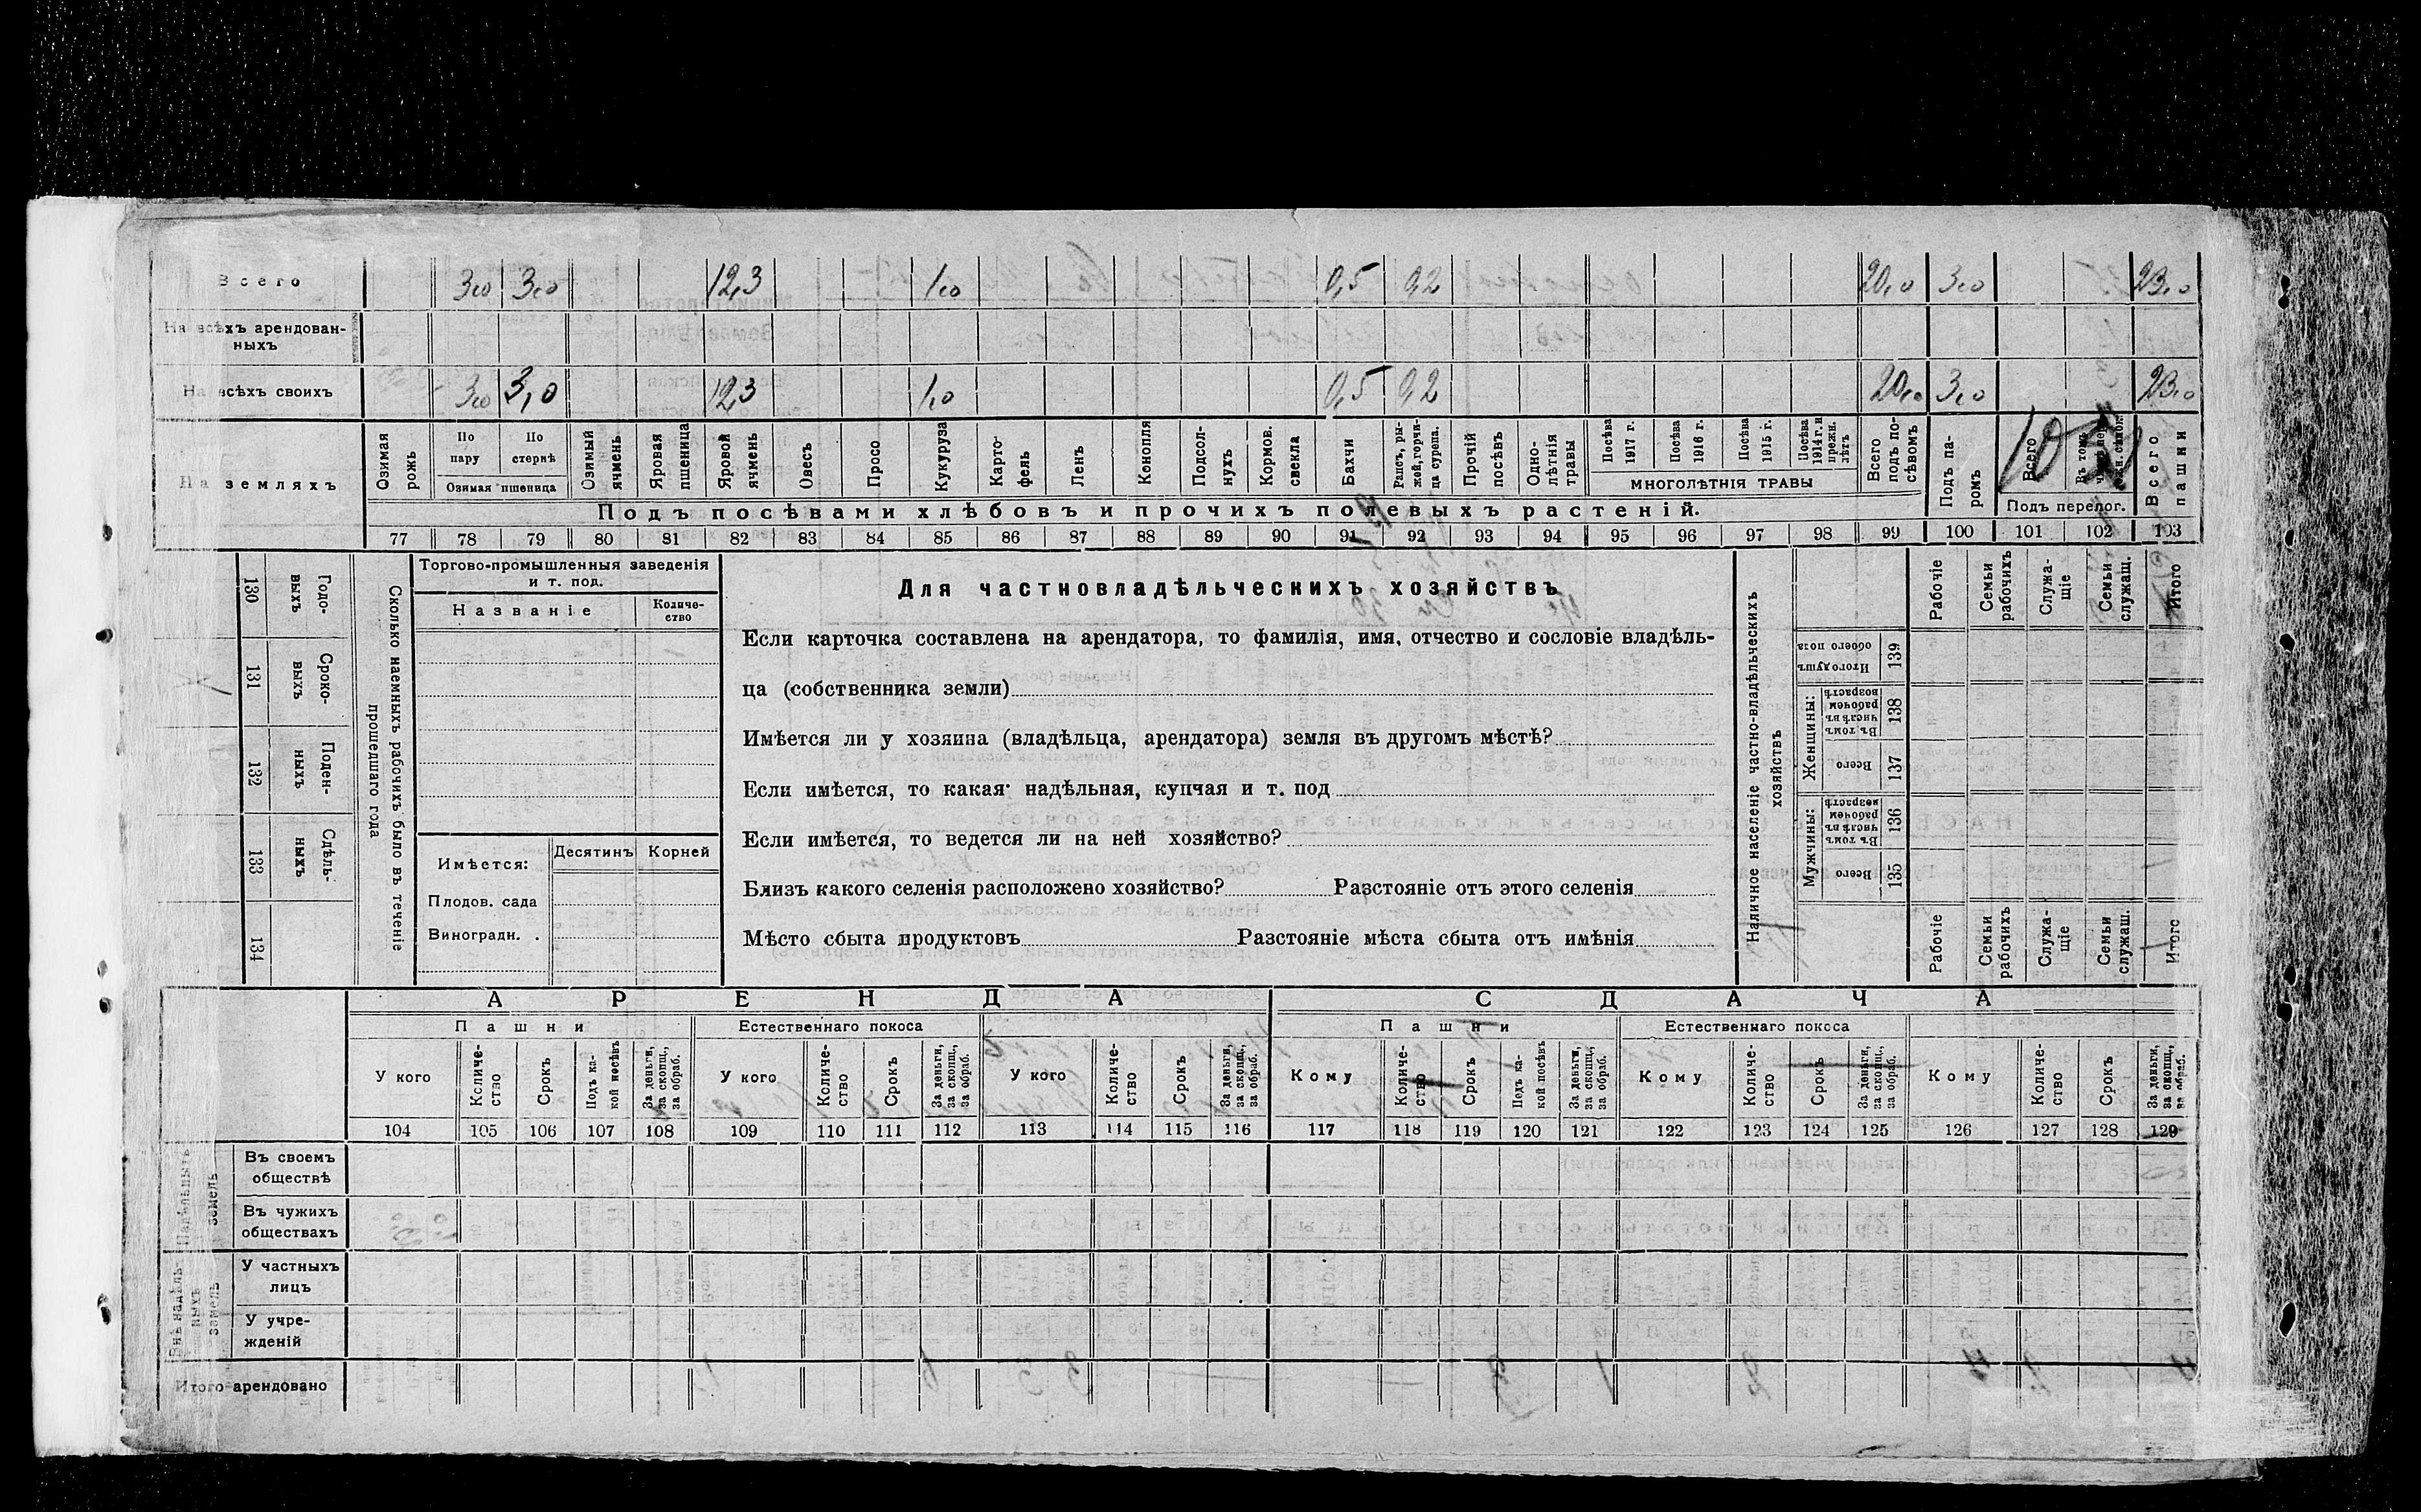 Всего 3,0 3,0 12,3 1,0 0,5 0,2 20,0 3,0 23,0
На всѣхъ арендован-
ныхъ
На всѣхъ своихъ 3,0 3,0 12,3 1,0 0,5 0,2 20,0 3,0 23,0
На земляхъ
Озимая рожь
По пару
По стернѣ
Озимая пшеница
Озимый ячмень
Яровая пшеница
Яровой ячмень
Овесъ
Просо
Кукуруза
Карто-
фель
Ленъ
Конопля
Подсол-
нухъ
Кормов. свекла
Бахчи
Рапсъ, ры-
жей, горчи-
ца сурепа.
Прочій посѣвъ
Одно-
лѣтнія травы
Посѣва 1917 г.
Посѣва 1916 г.
Посѣва 1915 г.
Посѣва 1914 г. и прежн. лѣтъ
МНОГОЛѢТНІЯ ТРАВЫ
Всего подъ по-
сѣвомъ
Подъ па-
ромъ
Всего
Въ томъ
Подъ перелог.
Всего пашни
Подъ посѣвами хлѣбовъ и прочихъ полевыхъ растеній.
77 78 79 80 81 82 83 84 85 86 87 88 89 90 91 92 93 94 95 96 97 98 99 100 101 102 103
130 Годо-
выхъ
131 Сроко-
выхъ
132 Поден-
ныхъ
133 Сдѣль-
ныхъ
134
Сколько наемныхъ рабочихъ было въ теченіе
прошедшаго года
Торгово-промышленныя заведенія
и т. под.
Названіе
Количе-
ство
Имѣется:
Десятинъ
Корней
Плодов. сада
Виноградн. .
Для частновладѣльческихъ хозяйствъ
Если карточка составлена на арендатора, то фамилія, имя, отчество и сословіе владѣль-
ца (собственника земли)
Имѣется ли у хозяина (владѣльца, арендатора) земля въ другомъ мѣстѣ?
Если имѣется, то какая: надѣльная, купчая и т. под
Если имѣется, то ведется ли на ней хозяйство?
Близъ какого селенія расположено хозяйство? Разстояніе отъ этого селенія
Мѣсто сбыта продуктовъ Разстояніе мѣста сбыта отъ имѣнія
Наличное населеніе частно-владѣльческихъ
хозяйствъ
Рабочіе
Семьи рабочихъ
Служа-
щіе
Семьи служащ.
Итого
Итого душъ обоего пола 139
Женщины:
Въ томъ числѣ въ рабочемъ возрастѣ 138
Всего 137
Мужчины:
Въ томъ числѣ въ рабочемъ возрастѣ 136
Всего 135
Рабочіе
Семьи рабочихъ
Служа-
щіе
Семьи служащ.
Итого
АРЕНДА СДАЧА
Пашни Естественнаго покоса Пашни Естественнаго покоса
У кого
Количе-
ство
Срокъ
Подъ ка-
кой посѣвъ
За деньги, за скопщ., за обраб.
У кого
Количе-
ство
Срокъ
За деньги, за скопщ., за обраб.
У кого
Количе-
ство
Срокъ
За деньги, за скопщ., за обраб.
Кому
Количе-
ство
Срокъ
Подъ ка-
кой посѣвъ
За деньги, за скопщ., за обраб.
Кому
Количе-
ство
Срокъ
За деньги, за скопщ., за обраб.
Кому
Количе-
ство
Срокъ
За деньги, за скопщ., за обраб.
104 105 106 107 108 109 110 111 112 113 114 115 116 117 118 119 120 121 122 123 124 125 126 127 128 129
Надѣльныхъ земель
Въ своемъ
обществѣ
Въ чужихъ
обществахъ
Внѣ надѣль-
ныхъ земель
У частныхъ
лицъ
У учре-
жденій
Итого арендовано